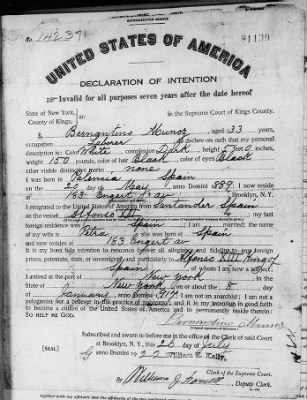 No. 14237
81139
UNITED STATES OF AMERICA
DECLARATION OF INTENTION
Invalid for all purposes seven years after the date hereof
State of New York,
County of Kings, ss:
In the Supreme Court of Kings County.
I, Bernantino Munoz, aged 33 years,
occupation Laborer, do declare on oath that my personal
description is: Color White, complexion Dark, height feet inches,
weight 150 pounds, color of hair Black, color of eyes Black
other visible distinctive marks none
I was born in Spain
on the 20 day of May, anno Domini 1889; I now reside
at 163 Engert av, Brooklyn, N.Y.
I emigrated to the United States of America from Santander Spain
on the vessel Alfonso XIII; my last
foreign residence was Spain; I am married; the name
of my wife is Petra; she was born in Spain
and now resides at 163 Engert av
It is my bona fide intention to renounce forever all allegiance and fidelity to any foreign
prince, potentate, state, or sovereignty, and particularly to Alfonso XIII King of
Spain, of whom I am now a subject;
I arrived at the port of New York, in the
State of New York, on or about the 8 day
of January, anno Domini 1917; I am not an anarchist; I am not a
polygamist nor a believer in the practice of polygamy; and it is my intention in good faith
to become a citizen of the United States of America and to permanently reside therein:
SO HELP ME GOD.
Subscribed and sworn to before me in the office of the Clerk of said Court
at Brooklyn, N.Y., this 26 day of July
anno Domini 1922
[SEAL]
William E. Kelly,
Clerk of the Supreme Court.
By William J.
Deputy Clerk.